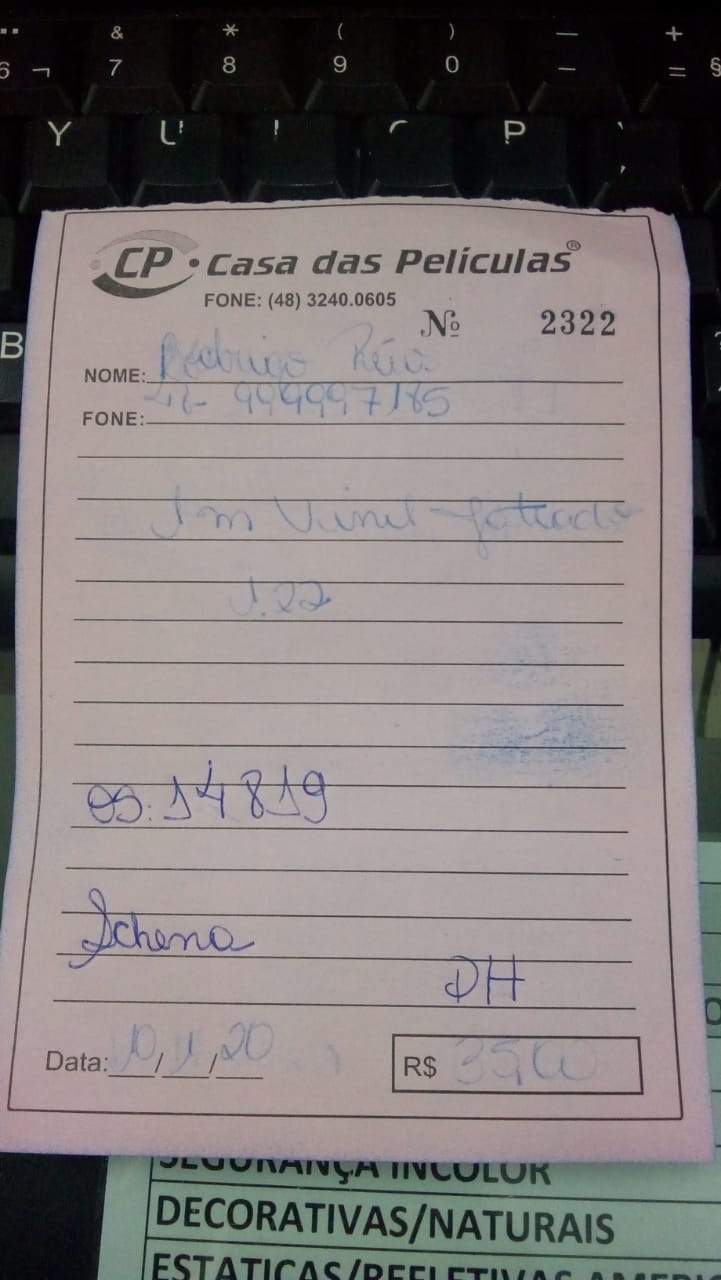 & * ( ) — +
6 ¬ 7 8 9 0 – = §
Y U I P
B
CP • Casa das Películas®
FONE: (48) 3240.0605
Nº 2322
NOME: Rodrigo
FONE: 48- 999997185
1 m Vinil Jateado
1.22
OS: 14819
Schena
DH
Data: 10/1/20
R$ 35,00
SEGURANÇA INCOLOR
DECORATIVAS/NATURAIS